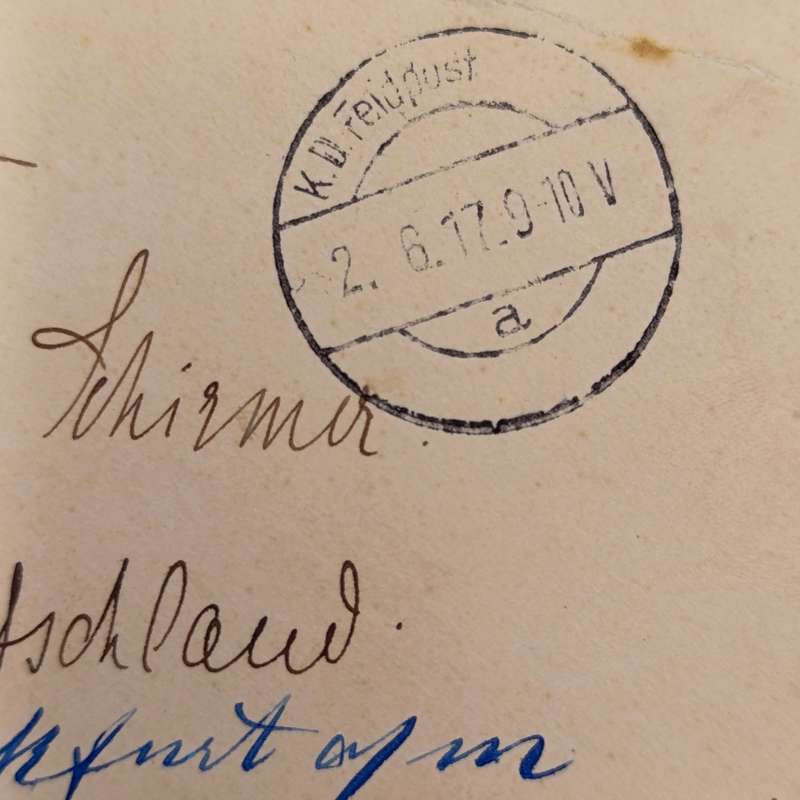 K.D.Feldpost
2. 6.17.9-10 V
a
Schirmer.
tschland.
kfurt a/m